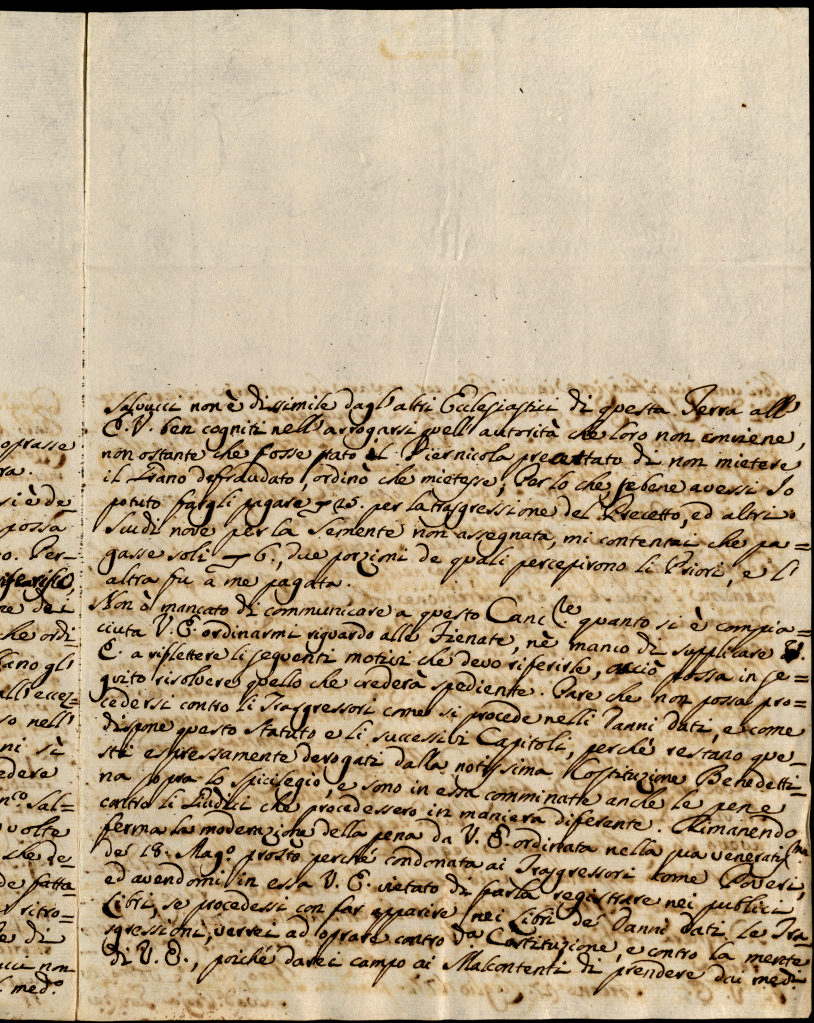 oprasse
ra.
si è de
possa
o. Per-
riferisse
re dei
che ordi-
lano gli
all'ecces-
so nell'
ni si
edere
nco Sal=
volte
che de
de fatta
ritro=
e di
ucci non
l medo
Salvucci non è dissimile dagl'altri Ecclesiastici di questa Terra all'
E. V. ben cogniti nell'arrogarsi quell'autorità che loro non conviene,
non ostante che fosse stato il Piernicola precettato di non mietere
il Grano defraudato, ordinò che mietesse, Per lo che, sebene avessi Io
potuto fargli pagare 25. per la trasgressione del Precetto, ed altri
Scudi nove per la Semente non assegnata, mi contentai che pa=
gasse soli 6., due porzioni de quali percepirono li Priori, e l'
altra fu à me pagata.
Non ò mancato di communicare a questo Canc.le quanto si è compia=
ciuta V. E. ordinarmi riguardo alle Fienate, nè manco di supplicare V.
E. a riflettere li seguenti motivi che devo riferirle, acciò possa in se=
guito risolvere quello che crederà spediente. Pare che non possa pro=
cedersi contro li Trasgressori come si procede nelli Danni dati, e come
dispone questo Statuto e li successivi Capitoli, perché restano que=
sti espressamente derogati dalla notissima Costituzione Benedetti=
na sopra lo spicilegio, e sono in essa comminatte anche le pene
contro li Giudici che procedessero in maniera diferente. Rimanendo
ferma la moderazione della pena da V. E. ordinata nella sua veneratis.ma
de' 18. Mago. prosto perché condonata ai Trasgressori come Poveri,
ed avendomi in essa V. E. vietato di farla registrare nei publici
Libri, se procedessi con far apparire nei Libri de' Danni dati le Tra=
sgressioni, verrei ad oprare contro da Costituzione, e contro la mente
di V. E., poiché darei campo ai Malcontenti di prendere dai medi